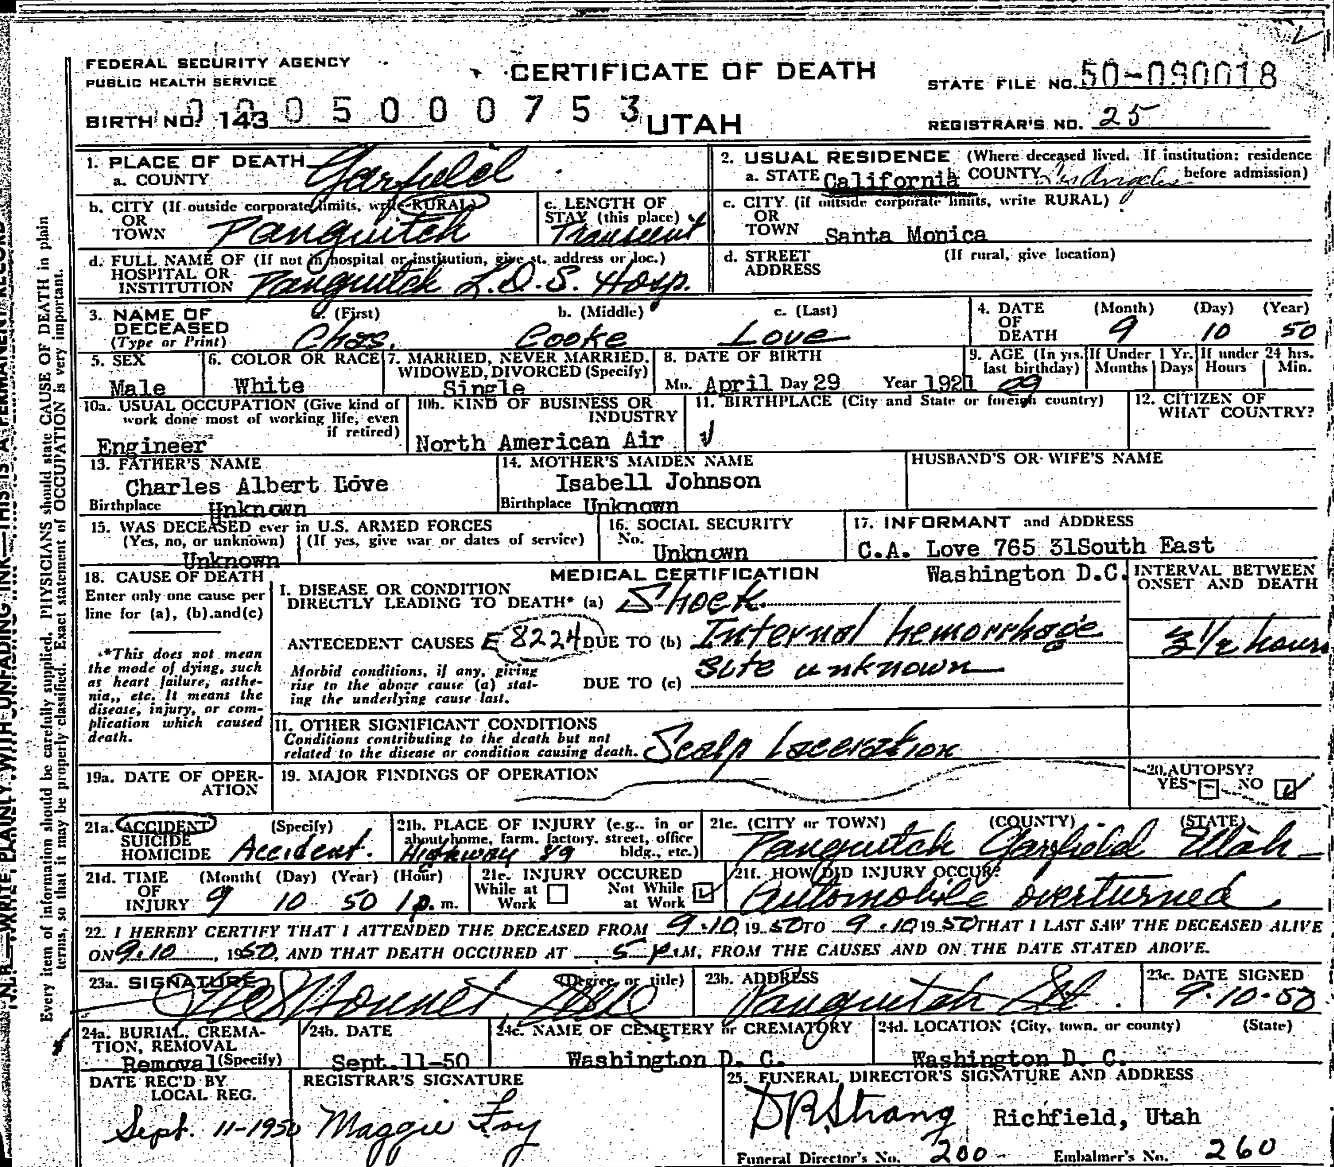 FEDERAL SECURITY AGENCY
PUBLIC HEALTH SERVICE
CERTIFICATE OF DEATH
STATE FILE NO. 50-090018
BIRTH NO. 143 0005000753
UTAH
REGISTRAR'S NO. 25
1. PLACE OF DEATH
a. COUNTY Garfield
2. USUAL RESIDENCE (Where deceased lived. If institution: residence before admission)
a. STATE California b. COUNTY Los Angeles
b. CITY (If outside corporate limits, write RURAL)
OR
TOWN Panguitch
c. LENGTH OF STAY (this place) Transcent
c. CITY (if outside corporate limits, write RURAL)
OR
TOWN Santa Monica
d. FULL NAME OF (If not in hospital or institution, give st. address or loc.)
HOSPITAL OR
INSTITUTION Panguitch L.D.S. Hosp.
d. STREET ADDRESS (If rural, give location)
3. NAME OF DECEASED (Type or Print)
(First) b. (Middle) c. (Last)
Chas. Cooke Love
4. DATE OF DEATH (Month) (Day) (Year)
9 10 50
5. SEX Male
6. COLOR OR RACE White
7. MARRIED, NEVER MARRIED, WIDOWED, DIVORCED (Specify) Single
8. DATE OF BIRTH
Mo. April Day 29 Year 1921
9. AGE (In yrs. last birthday) 29
If Under 1 Yr. Months Days
If under 24 hrs. Hours Min.
10a. USUAL OCCUPATION (Give kind of work done most of working life, even if retired)
Engineer
10b. KIND OF BUSINESS OR INDUSTRY
North American Air
11. BIRTHPLACE (City and State or foreign country)
12. CITIZEN OF WHAT COUNTRY?
13. FATHER'S NAME
Charles Albert Love
Birthplace Unknown
14. MOTHER'S MAIDEN NAME
Isabell Johnson
Birthplace Unknown
HUSBAND'S OR WIFE'S NAME
15. WAS DECEASED ever in U.S. ARMED FORCES
(Yes, no, or unknown) (If yes, give war or dates of service)
Unknown
16. SOCIAL SECURITY
No. Unknown
17. INFORMANT and ADDRESS
C.A. Love 765 31South East
Washington D.C.
18. CAUSE OF DEATH
Enter only one cause per line for (a), (b), and (c)
*This does not mean the mode of dying, such as heart failure, asthenia,, etc. It means the disease, injury, or complication which caused death.
MEDICAL CERTIFICATION
INTERVAL BETWEEN ONSET AND DEATH
I. DISEASE OR CONDITION
DIRECTLY LEADING TO DEATH* (a) Shock
ANTECEDENT CAUSES E 8224 DUE TO (b) Internal hemorrhage
3 1/2 hours
Morbid conditions, if any, giving rise to the above cause (a) stating the underlying cause last.
DUE TO (c) Site unknown
II. OTHER SIGNIFICANT CONDITIONS
Conditions contributing to the death but not related to the disease or condition causing death.
Scalp Laceration
19a. DATE OF OPERATION
19. MAJOR FINDINGS OF OPERATION
20. AUTOPSY?
YES NO
21a. ACCIDENT
SUICIDE
HOMICIDE
(Specify)
Accident.
21b. PLACE OF INJURY (e.g., in or about home, farm, factory, street, office bldg., etc.)
Highway 89
21c. (CITY or TOWN) (COUNTY) (STATE)
Panguitch Garfield Utah
21d. TIME OF INJURY (Month( (Day) (Year) (Hour)
9 10 50 1 p.m.
21e. INJURY OCCURED
While at Work Not While at Work
21f. HOW DID INJURY OCCUR?
Automobile overturned
22. I HEREBY CERTIFY THAT I ATTENDED THE DECEASED FROM 9-10, 19 50 TO 9-10 19 50 THAT I LAST SAW THE DECEASED ALIVE
ON 9-10, 1950, AND THAT DEATH OCCURED AT 5 P.M, FROM THE CAUSES AND ON THE DATE STATED ABOVE.
23a. SIGNATURE (Degree or title)
23b. ADDRESS
Panguitch Ut.
23c. DATE SIGNED
9-10-50
24a. BURIAL, CREMATION, REMOVAL (Specify)
Removal
24b. DATE
Sept. 11-50
24c. NAME OF CEMETERY or CREMATORY
Washington D. C.
24d. LOCATION (City, town, or county) (State)
Washington D. C.
DATE REC'D BY LOCAL REG.
Sept. 11-1950
REGISTRAR'S SIGNATURE
Maggie Foy
25. FUNERAL DIRECTOR'S SIGNATURE AND ADDRESS
D R Strang Richfield, Utah
Funeral Director's No. 200 Embalmer's No. 260
N.B.—WRITE PLAINLY, WITH UNFADING INK—THIS IS A PERMANENT RECORD
Every item of information should be carefully supplied. PHYSICIANS should state CAUSE OF DEATH in plain
terms, so that it may be properly classified. Exact statement of OCCUPATION is very important.